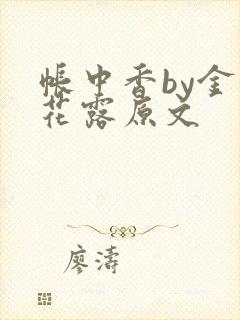 帐中香by金
花露原文
廖濤